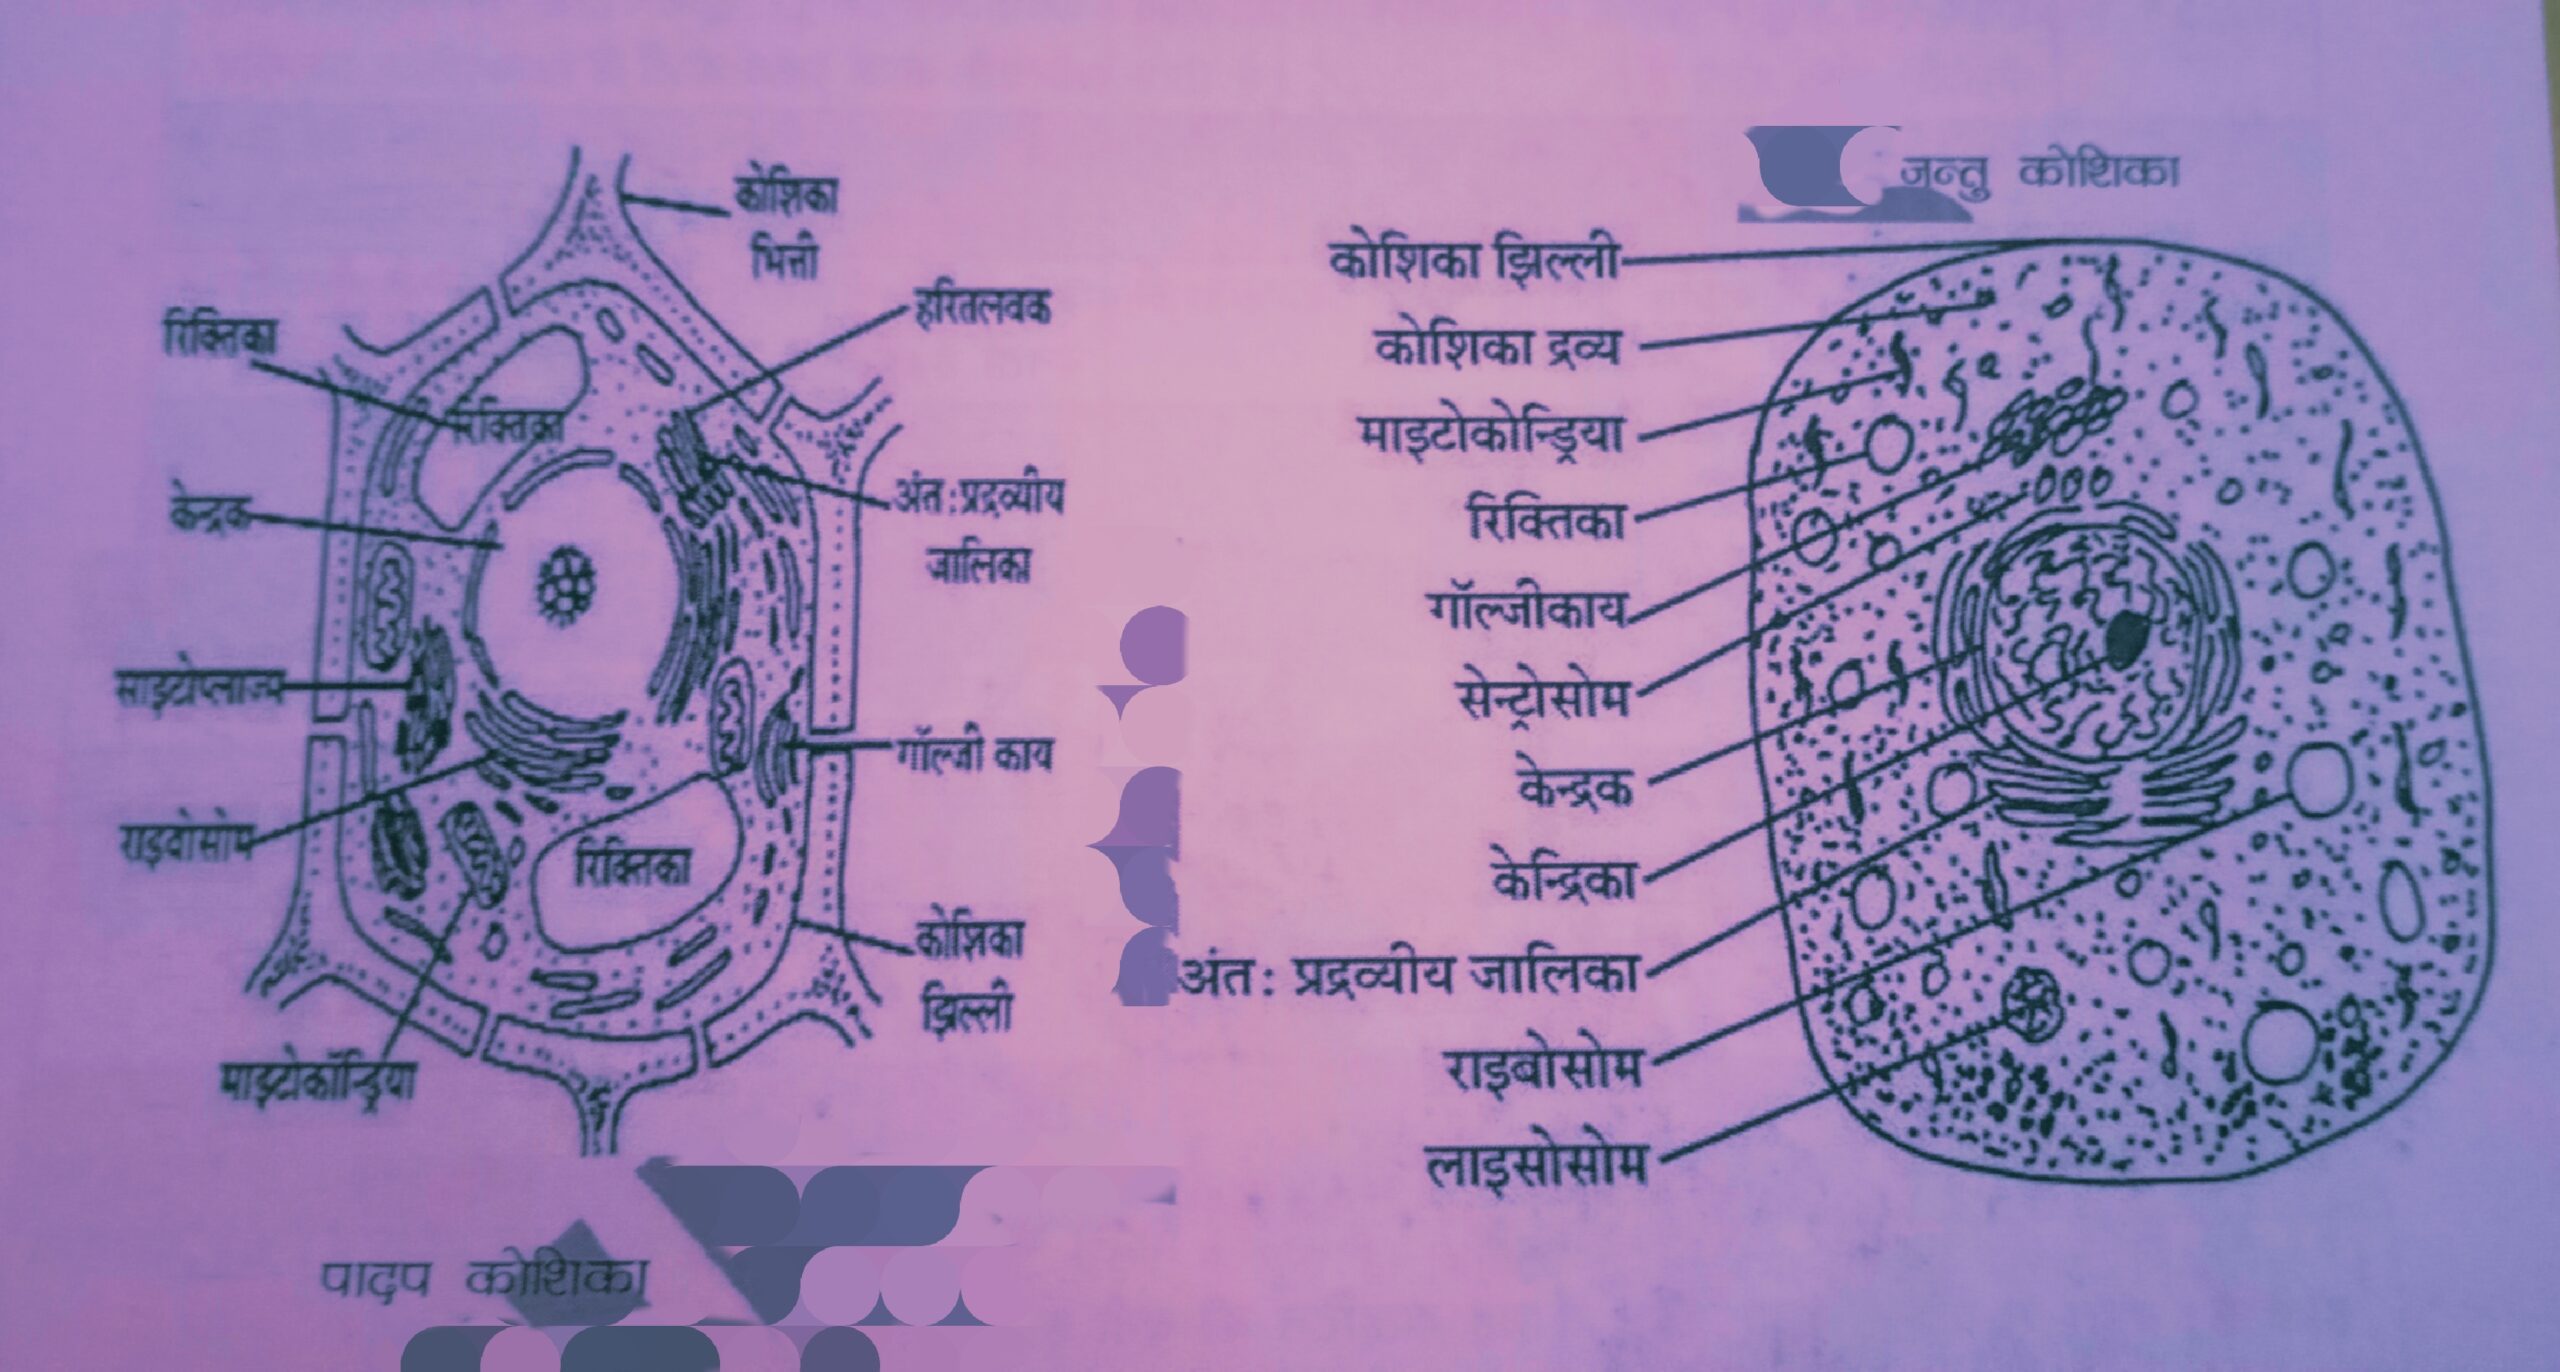 कोशिका
भित्ती
हरितलवक
रिक्तिका
रिक्तिका
केन्द्रक
अंत:प्रद्रव्यीय
जालिका
साइटोप्लाज्म
गॉल्जी काय
राइबोसोम
रिक्तिका
कोशिका
झिल्ली
माइटोकॉन्ड्रिया
पादप कोशिका
जन्तु कोशिका
कोशिका झिल्ली
कोशिका द्रव्य
माइटोकोन्ड्रिया
रिक्तिका
गॉल्जीकाय
सेन्ट्रोसोम
केन्द्रक
केन्द्रिका
अंत: प्रद्रव्यीय जालिका
राइबोसोम
लाइसोसोम